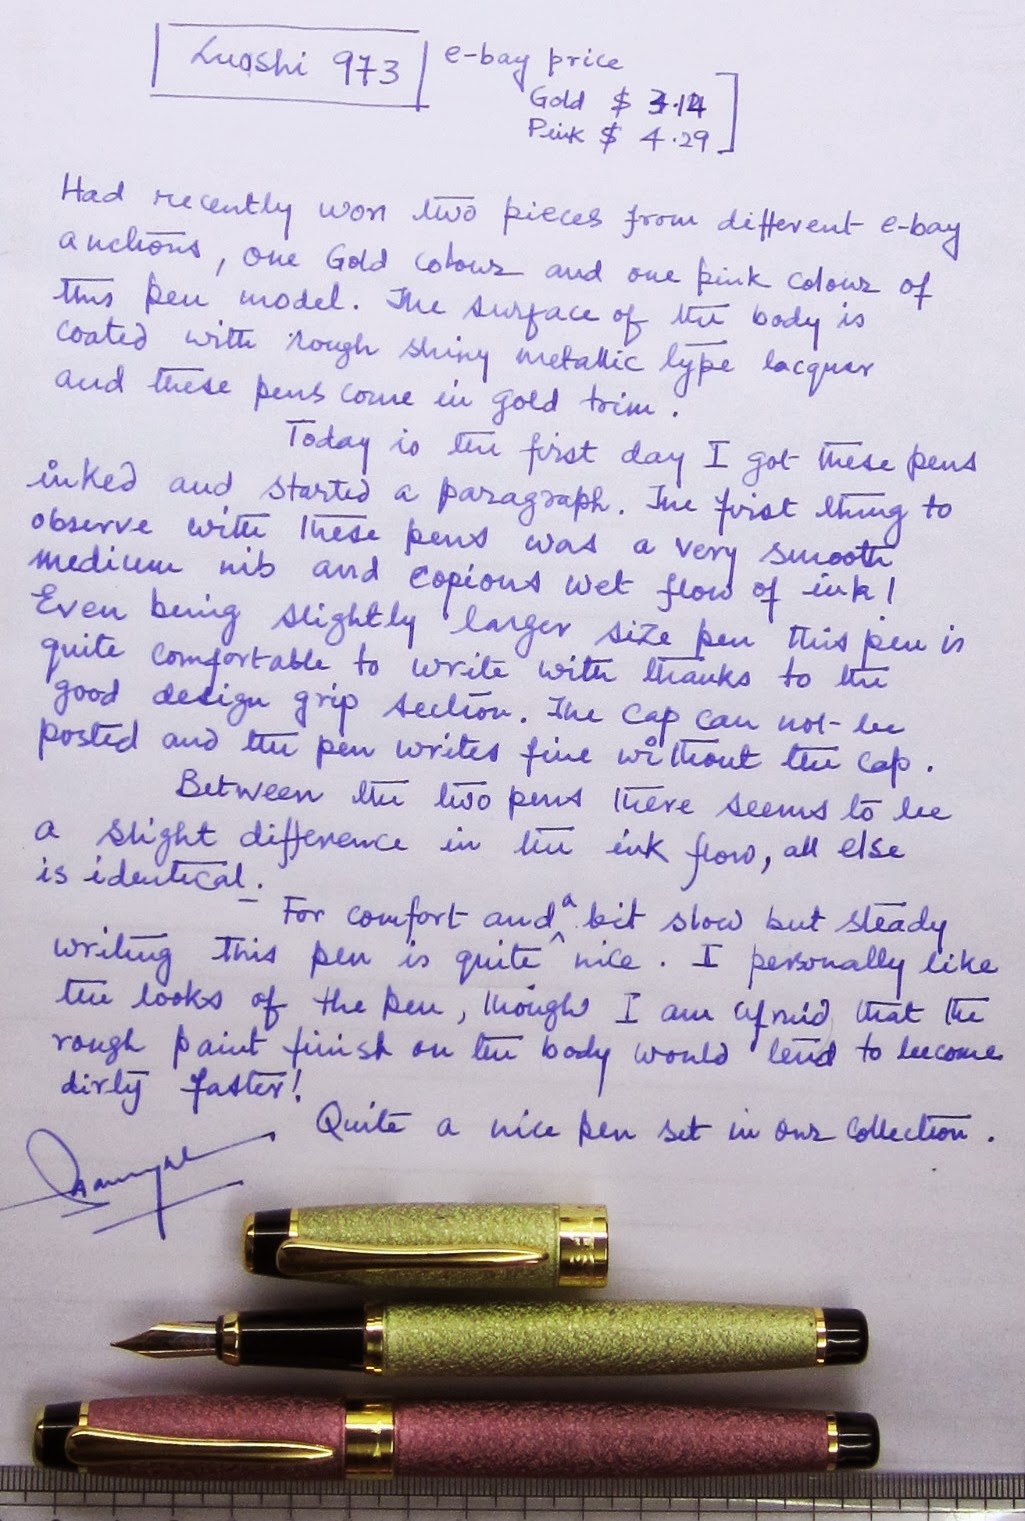 Luoshi 973 e-bay price
Gold $ 3.14
Pink $ 4.29
Had recently won two pieces from different e-bay
auctions, one Gold colour and one pink colour of
this pen model. The surface of the body is
coated with rough shiny metallic type lacquer
and these pens come in gold trim.
Today is the first day I got these pens
inked and started a paragraph. The first thing to
observe with these pens was a very smooth
medium nib and copious wet flow of ink!
Even being slightly larger size pen this pen is
quite comfortable to write with thanks to the
good design grip section. The cap can not be
posted and the pen writes fine without the cap.
Between the two pens there seems to be
a slight difference in the ink flow, all else
is identical.
For comfort and a bit slow but steady
writing this pen is quite nice. I personally like
the looks of the pen, though I am afraid that the
rough paint finish on the body would tend to become
dirty faster!
Quite a nice pen set in our collection.